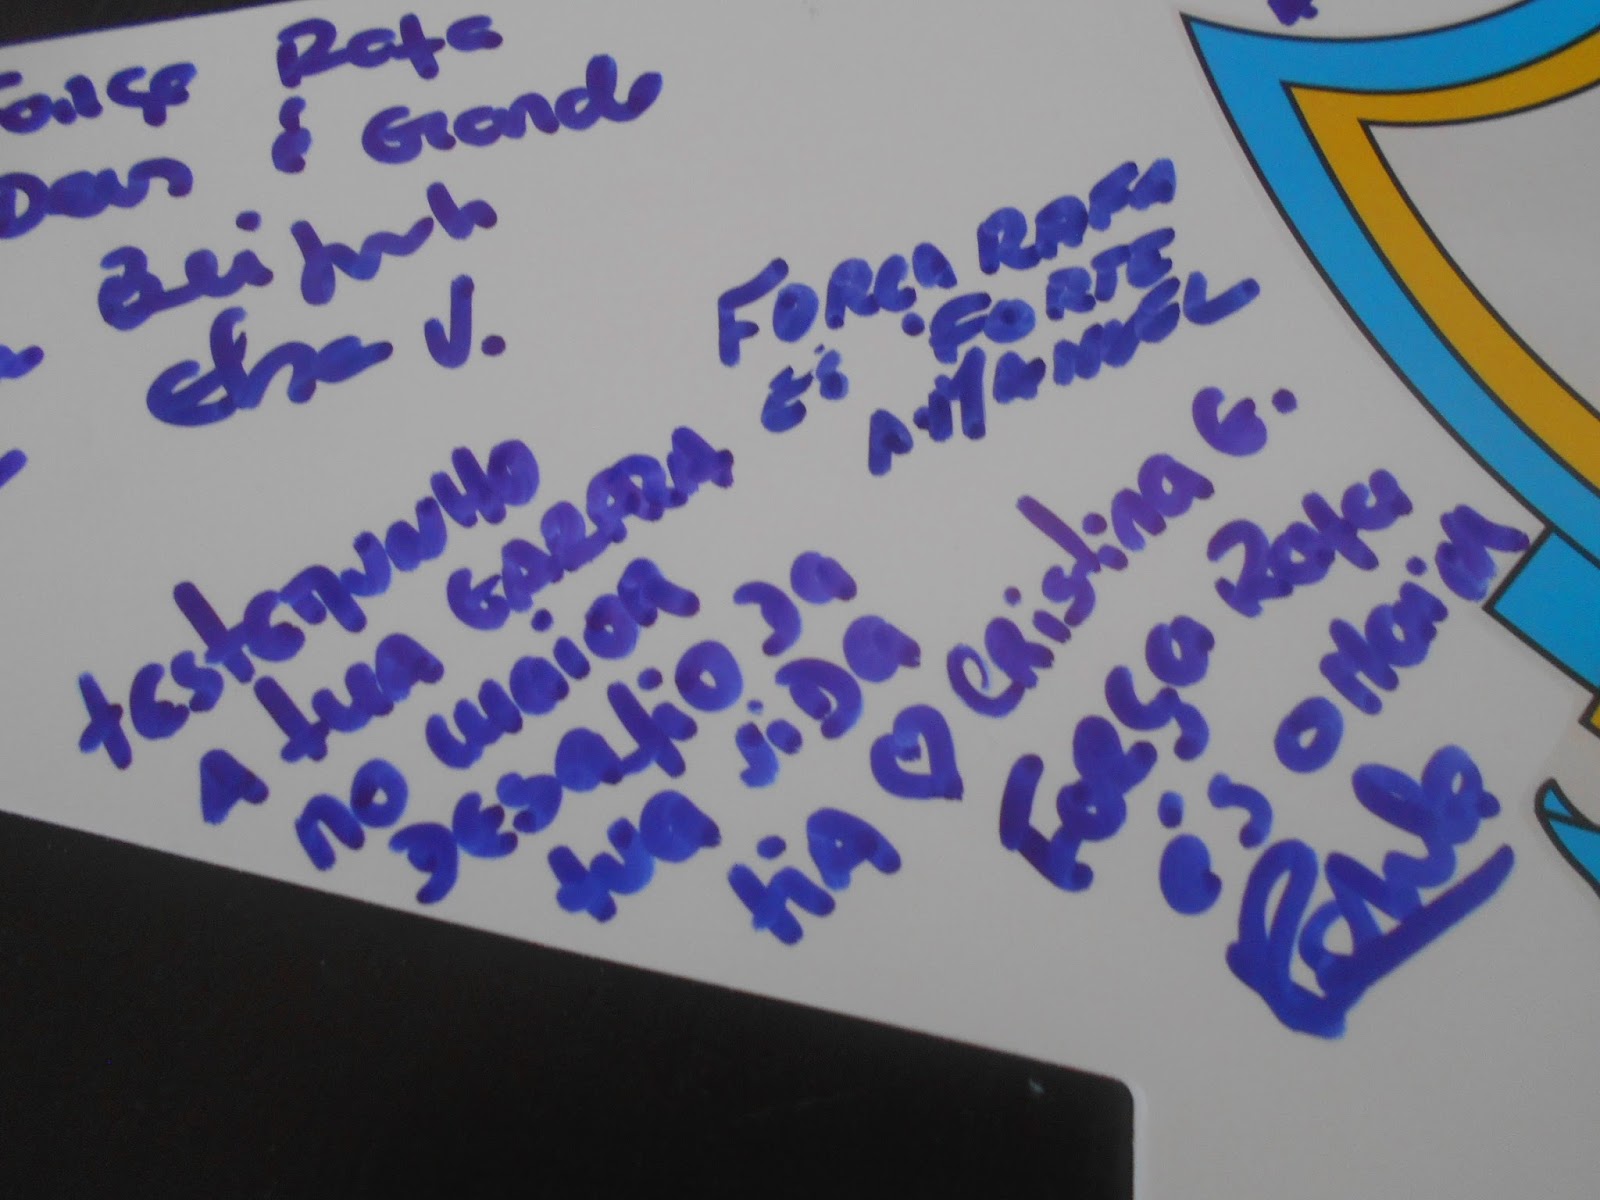 Força Rafa
Deus é Grande
Beijinh
Elsa V.
FORÇA RAFA
ÉS FORTE
A. MANUEL
testemunho
A tua GARRA
no maior
DESAFIO DA
tua viDA
tiA ♡ CRistina G.
Força Rafa
és o maior